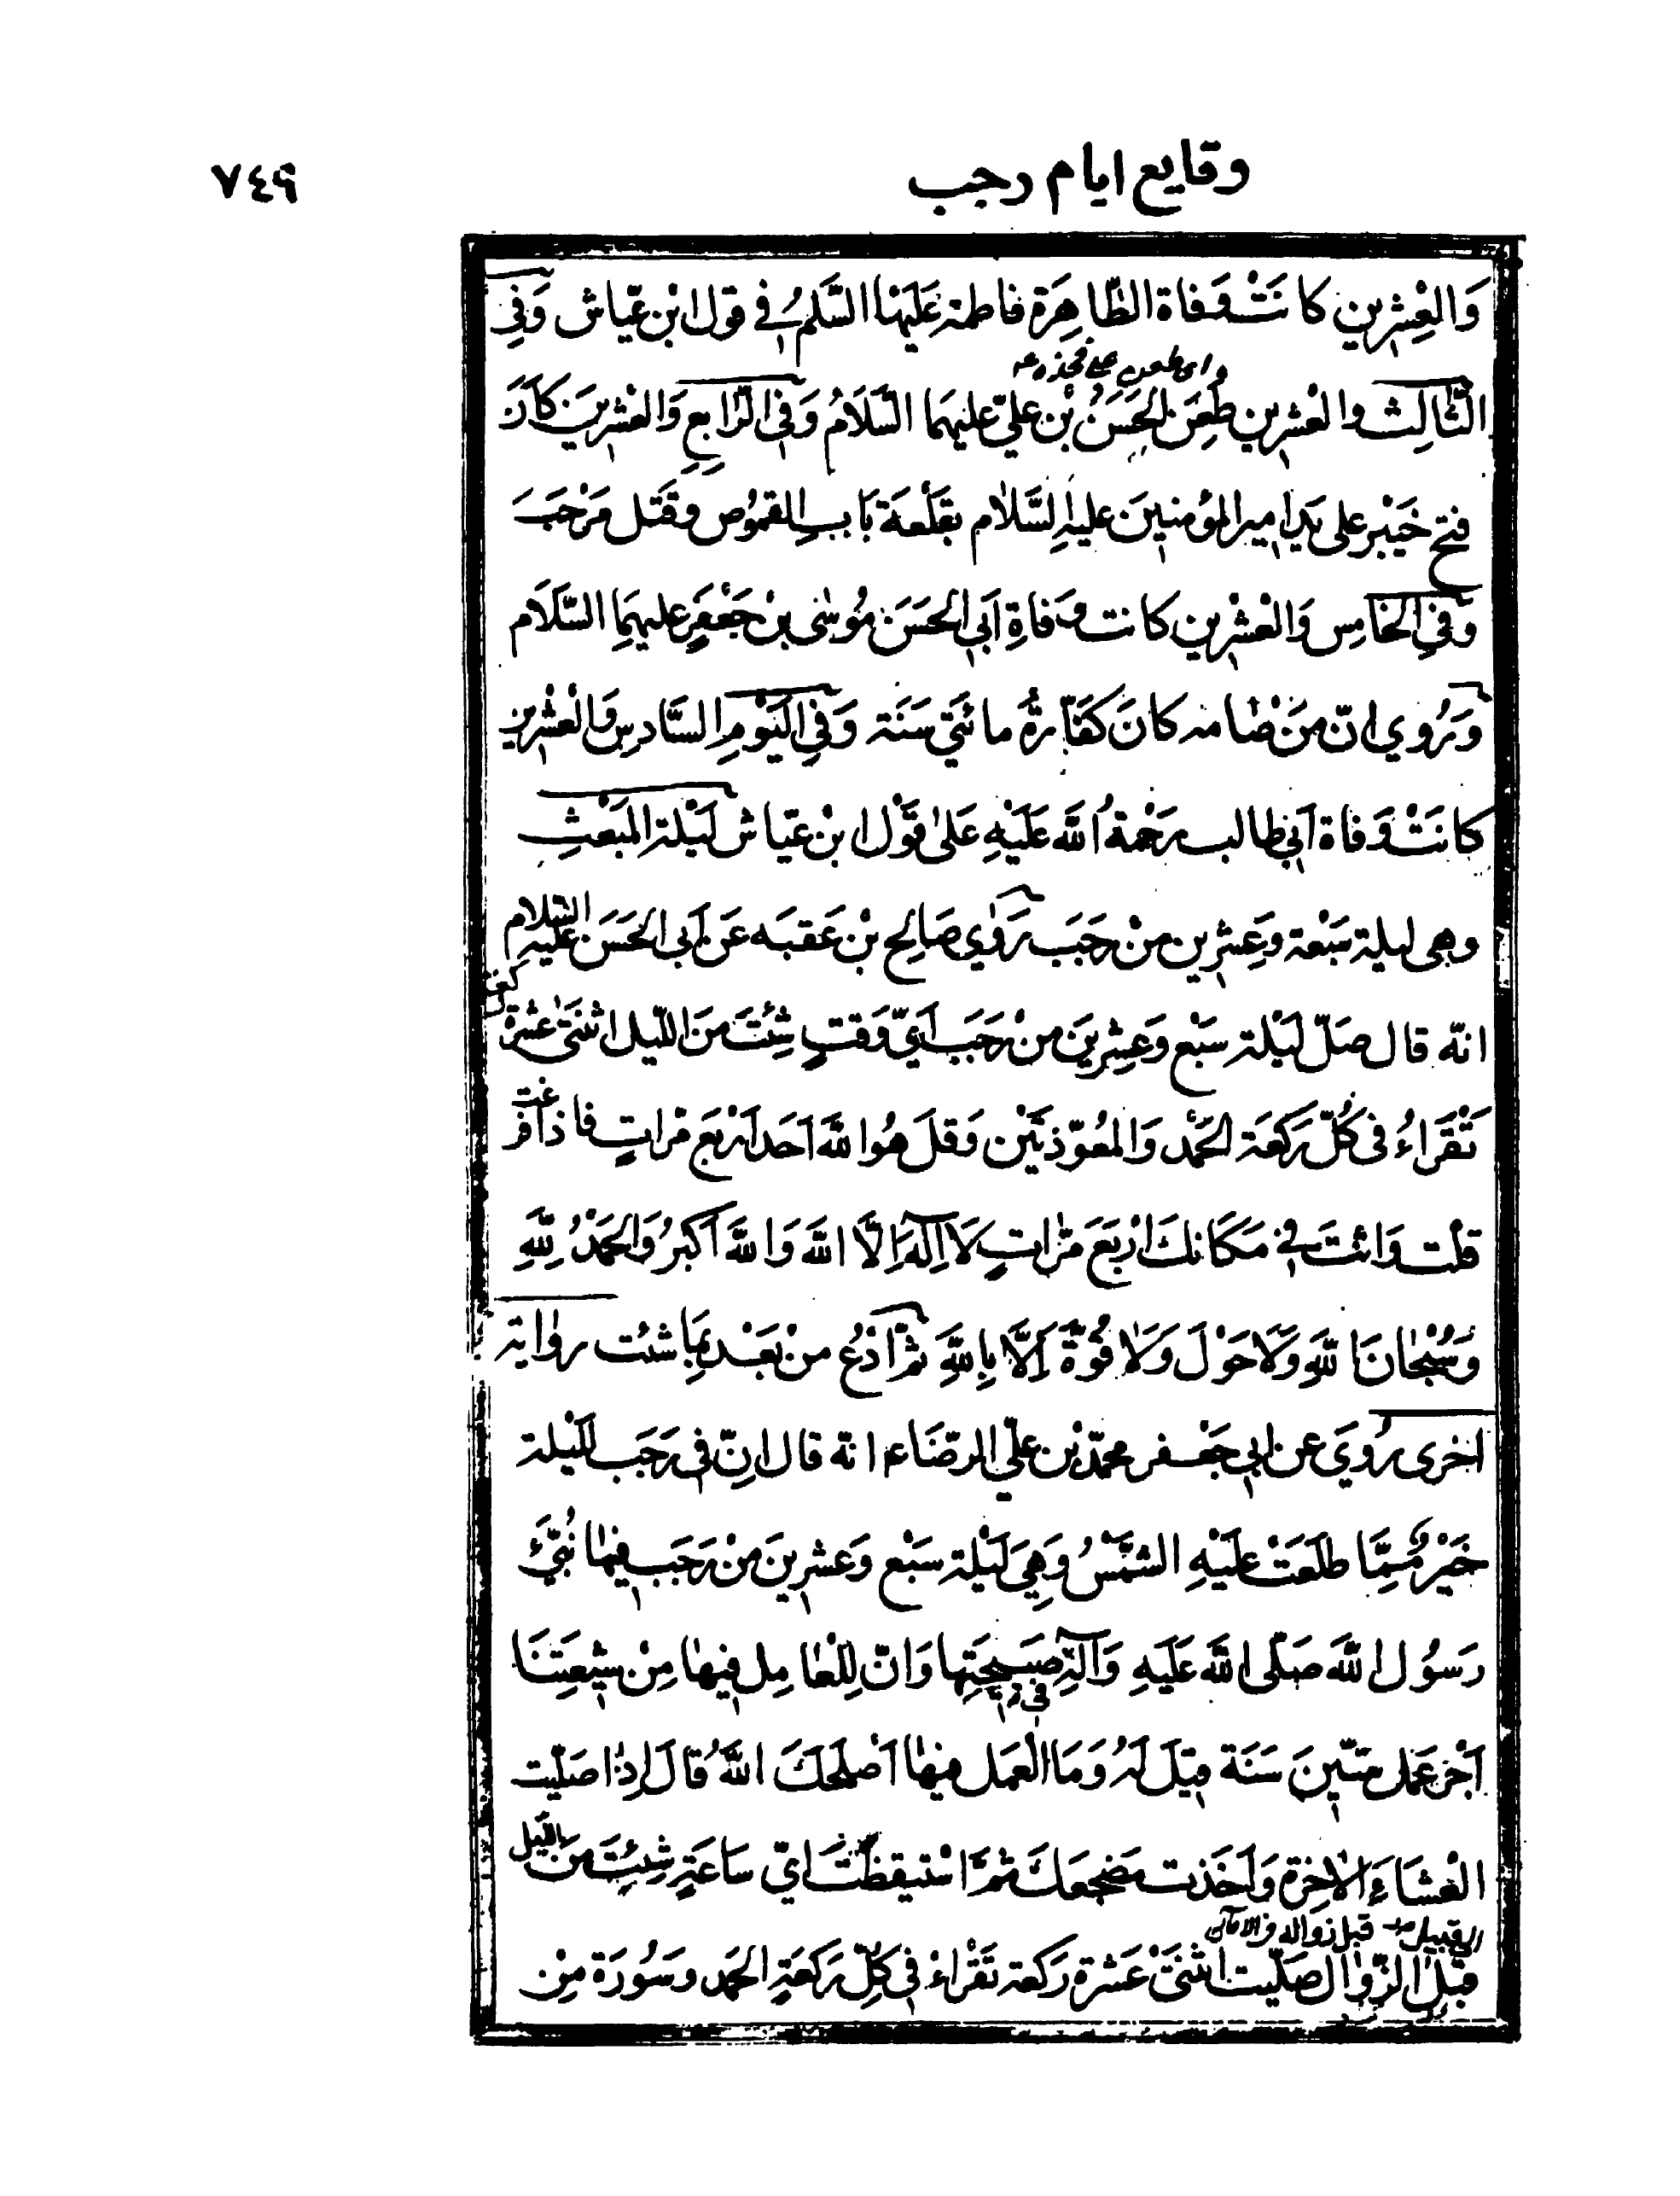 وقايع ايام رجب
٧٤٩
وَالعِشرين كانَتْ وَفاة الطّاهِرَة فاطمة عَلَيْهَا السَّلَمُ في قول ابْن عيّاش وَفِي
الثَّالِث والعشرين طُعِنَ الحَسَنُ بْن عليّ عليهما السَّلَامُ وَفي الرّابع وَالعشرينَ كَانَ
فتح خَيْبر على يَد امير المؤمنينَ عليهِ السَّلام بقلْعَة بَابِ القموُص وقَتَل مَرْحَبَ
وَفي الخامِس وَالعْشرين كانت وفاةِ اَبي الحَسَن مُوسٰى بن جَعْفَرٍ عليهِمَا السَّلَام
وَرُوي انّ مَنْ صٰامه كانَ كفّارةُ مائتَي سَنَة وَفِي اليَوْمِ السَّادسِ وَالعشرين
كانَتْ وَفاة اَبي طالب رَحْمةُ اللّٰه عَلَيْهِ عَلىٰ قَوْل ابْن عيّاش لَيْلة المَبْعَثِ
وهي ليلة سَبْعة وعِشرين منْ رجَبَ رَوٰى صَالح بْن عَقبَه عَن اَبي الحَسَن عليْه السَّلام
انّه قال صَلّ لَيْلة سَبْع وَعِشرينَ من رَجَبَ اَيّ وَقتٍ شِئتَ منَ اللّيل اثنَتىٰ عَشرة
تَقْرَاءُ في كُلّ رَكعَة الحَمْد وَالمُعوّذتَيْن وَقلْ هُوَ اللّٰه اَحَد اَرْبَعَ مَرّاتٍ فاذا فرغت
قلْت وَانْتَ في مَكانك اَرْبَعَ مَرّاتٍ لاَ اِلٰهَ اِلَّا اللّٰه وَاللّٰه اَكبَرُ وَالحَمْدُ لِلّٰهِ
وَسُبْحٰانَ اللّٰهِ وَلَا حَوْلَ وَلَا قُوّةَ اِلَّا بِاللّٰهِ ثمّ اَدْعُ منْ بَعْد بِمَا شئت روٰاية
اخرى رُوِيَ عن ابي جَعْفر محمّد بْن عليّ الرّضَا ء انّه قال انّ في رَجَبَ للَيْلة
خَيْرٌ مِمَّا طلعَتْ عليْهِ الشَّمْسُ وَهِيَ لَيْلة سَبْع وَعشرينَ منْ رَجَب فيهٰا نُبّئَ
رَسُول اللّٰه صَلّى اللّٰه عَلَيهِ وَآلهِ في صَبيحَتِها وَانّ لِلْعٰامِل فيهٰا مِنْ شيعَتِنَا
اَجْر عَمَل ستّينَ سَنَة قيلَ لَهُ وَمَا الْعَمَل فيهٰا اَصْلَحَكَ اللّٰهُ قالَ اِذٰا صَلّيت
الْعشاءَ الاٰخِرة وَاَخَذت مضجعك ثمّ اسْتيقظتَ ايّ سَاعَةٍ شِئتَ منَ اللّيل
قبل زواله
قبْلَ الزّوٰال صَلّيت اثنَتَيْ عَشرة رَكعة تَقْراءُ في كلِّ رَكعَةٍ الحَمد وسُورَة مِنْ